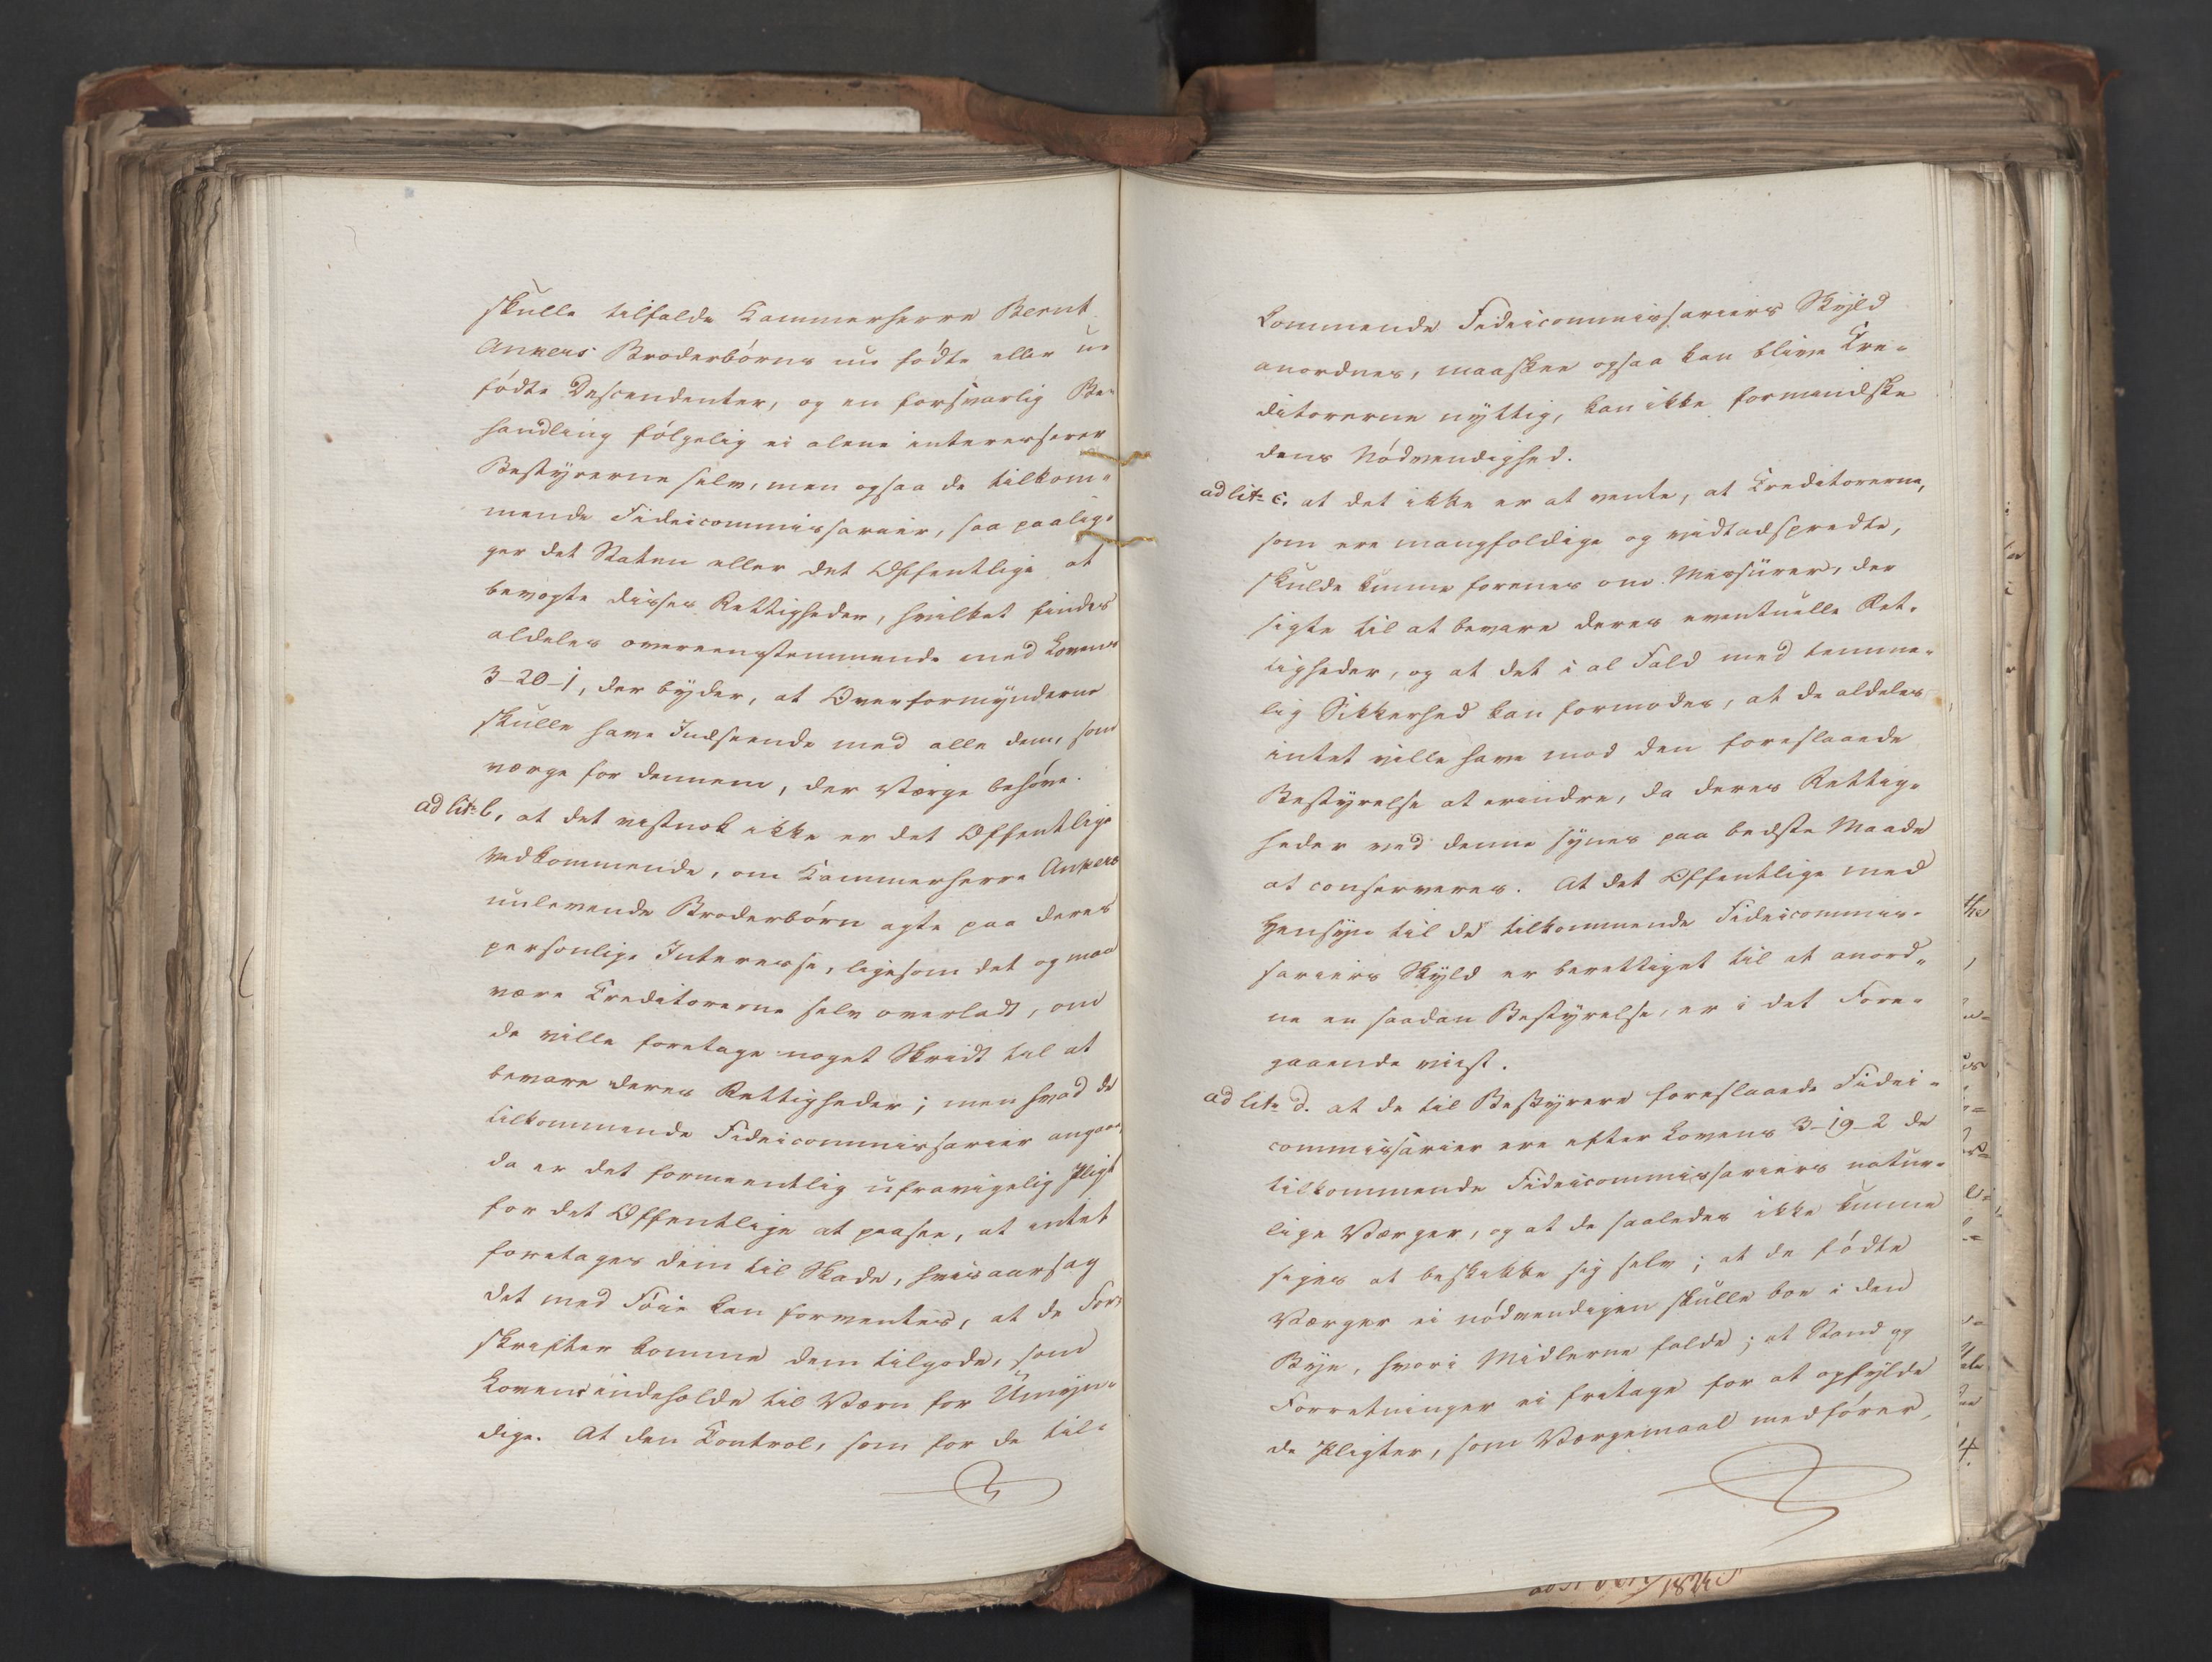 skulle tilfalde Kammerherre Bernt
Ankers Broderbörns nu födte eller u-
födte Descendenter, og en forsvarlig Be-
handling fölgelig ei alene interesserer
Bestyrerne selv, men ogsaa de tilkom-
mende Fideicommissarier, saa paalig-
ger det Staten eller det Offentlige at
bevogte disses Rettigheder, hvilket findes
aldeles overeensstemmende med Lovens
3-20-1, der byder, at Overformynderne
skulle have Indseende med alle dem, som
værge for dennem, der Værge behöve.
ad lit: b, at det vistnok ikke er det Offentlige
vedkommende, om Kammerherre Ankers
nulevende Broderbörn agte paa deres
personlige Interesse, ligesom det og maa
være Creditorerne selv overladt, om
de ville foretage noget Skridt til at
bevare deres Rettigheder; men hvad de
tilkommende Fideicommissarier angaar,
da er det formeentlig ufravigelig Pligt
for det Offentlige at paasee, at intet
foretages dem til Skade, hvisaarsag
det med Föie kan forventes, at de For-
skrifter komme dem tilgode, som
Loven indeholde til Værn for Umyn-
dige. At den Control, som for de til-
kommende Fideicommissariers Skyld
anordnes, maaskee ogsaa kan blive Cre-
ditorerne nyttig, kan ikke formindske
dens Nödvendighed.
ad lit: c. at det ikke er at vente, at Creditorerne,
som ere mangfoldige og vidtadspredte,
skulde kunne forenes om Messurer, der
sigte til at bevare deres eventuelle Ret-
tigheder, og at det i al Fald med temme-
lig Sikkerhed kan formodes, at de aldeles
intet ville have mod den foreslaaede
Bestyrelse at erindre, da deres Rettig-
heder ved denne synes paa bedste Maade
at conserveres. At det Offentlige med
Hensyn til de tilkommende Fideicommis-
sariers Skyld er berettiget til at anord-
ne en saadan Bestyrelse, er i det Fore-
gaaende viist.
ad lit: d. at de til Bestyrere foreslaaede Fidei-
commissarier ere efter Lovens 3-19-2 de
tilkommende Fideicommissariers natur-
lige Værger, og at de saaledes ikke kunne
siges at beskikke sig selv; at de födte
Værger ei nödvendigen skulle boe i den
Bye, hvori Midlerne falde; at Stand og
Forretninger ei fritage for at opfylde
de Pligter, som Værgemaal medförer,